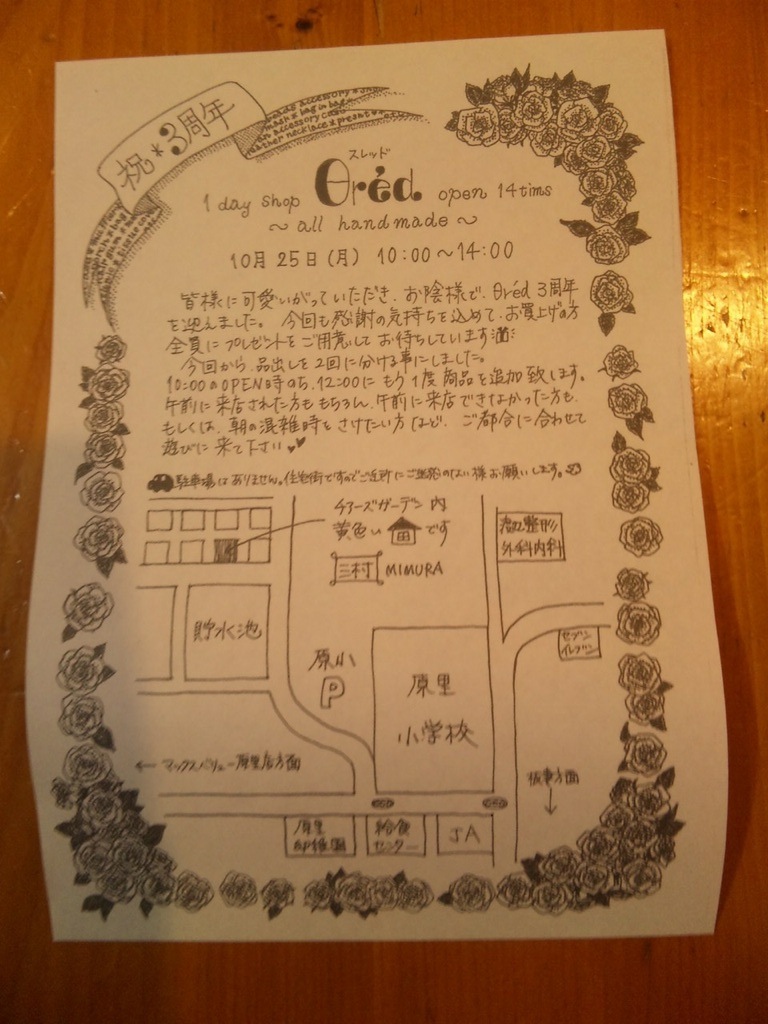 祝*3周年
スレッド
1 day shop θréd open 14tims
～ all handmade ～
10月 25日(月) 10:00～14:00
皆様に可愛いがっていただき、お陰様で、θréd 3周年
を迎えました。 今回も感謝の気持ちを込めて、お買上げの方
全員に プレゼントを ご用意して お待ちしています
今回から、品出しを 2回に分ける事にしました。
10:00のOPEN時のち、12:00に もう1度 商品を追加致します。
午前に来店された方も もちろん、午前に来店できなかった方も、
もしくは、朝の混雑時を さけたい方 など、ご都合に合わせて
遊びに 来て下さい
駐車場は ありません。住宅街ですのでご近所にご迷惑のない様お願いします。
チアーズガーデン 内
黄色い です
三村 MIMURA
整形
外科内科
貯水池
セブン
イレブン
原小
P
原里
小学校
← マックスバリュー原里店方面
板妻方面
↓
原里
幼稚園
給食
センター
JA